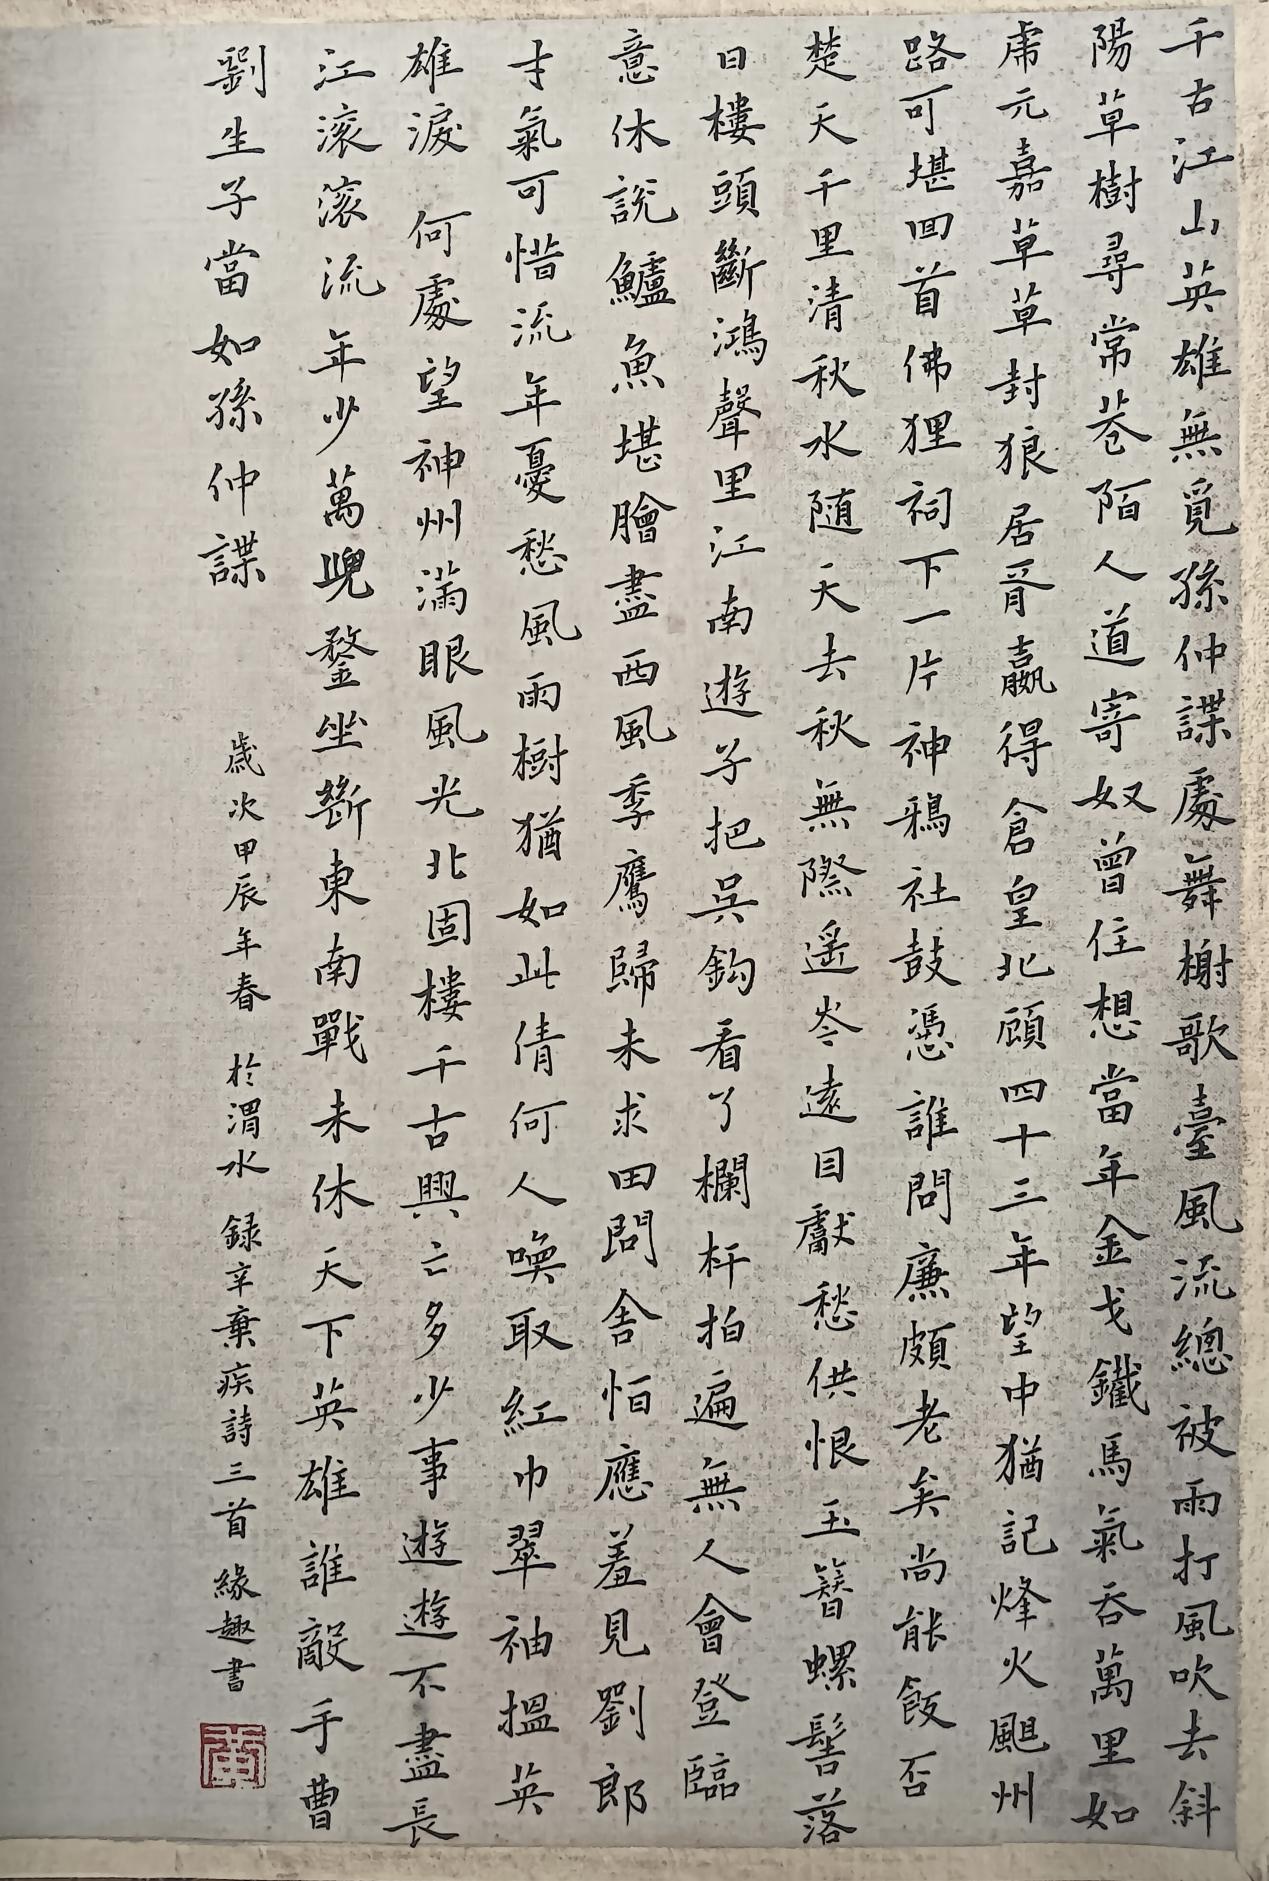 千古江山英雄無覓孫仲謀處舞榭歌臺風流總被雨打風吹去斜
陽草樹尋常巷陌人道寄奴曾住想當年金戈鐵馬氣吞萬里如
虎元嘉草草封狼居胥嬴得倉皇北顧四十三年望中猶記烽火州
路可堪回首佛狸祠下一片神鴉社鼓憑誰問廉頗老矣尚能飯否
楚天千里清秋水随天去秋無際遥岑遠目獻愁供恨玉簪螺髻落
日樓頭斷鴻聲里江南遊子把吳鈎看了欄杆拍遍無人會登臨
意休說鱸魚堪膾盡西風季鷹歸未求田問舍怕應羞見劉郎
才氣可惜流年憂愁風雨樹猶如此倩何人喚取紅巾翠袖搵英
雄淚 何處望神州滿眼風光北固樓千古興亡多少事遊遊不盡長
江滚滚流年少萬兜鍪坐斷東南戰未休天下英雄誰敵手曹
劉生子當如孫仲謀 歲次甲辰年春 於渭水 録辛棄疾詩三首 緣趣書